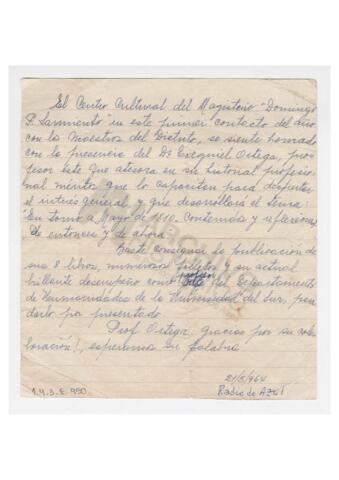 El Centro Cultural del Magisterio "Domingo
F. Sarmiento" en este primer contacto del año
con los Maestros del Distrito, se siente honrado
con la presencia del Dr Ezequiel Ortega, pro-
fesor este que atesora en su historial profesio-
nal méritos que lo capacitan para despertar
el interés general, y que desarrollará el tema:
"En torno a Mayo de 1810. Contenidos y reflexiones
de entonces y de ahora"
Baste consignar la publicación de
sus 8 libros, numerosos folletos y su actual
brillante desempeño como del Departamento
de Humanidades de la Universidad del Sur, para
darlo por presentado.
Prof Ortega: gracias por su cola-
boración!, esperamos su palabra
21/5/964
Radio de Azul
1.4.3.E.980